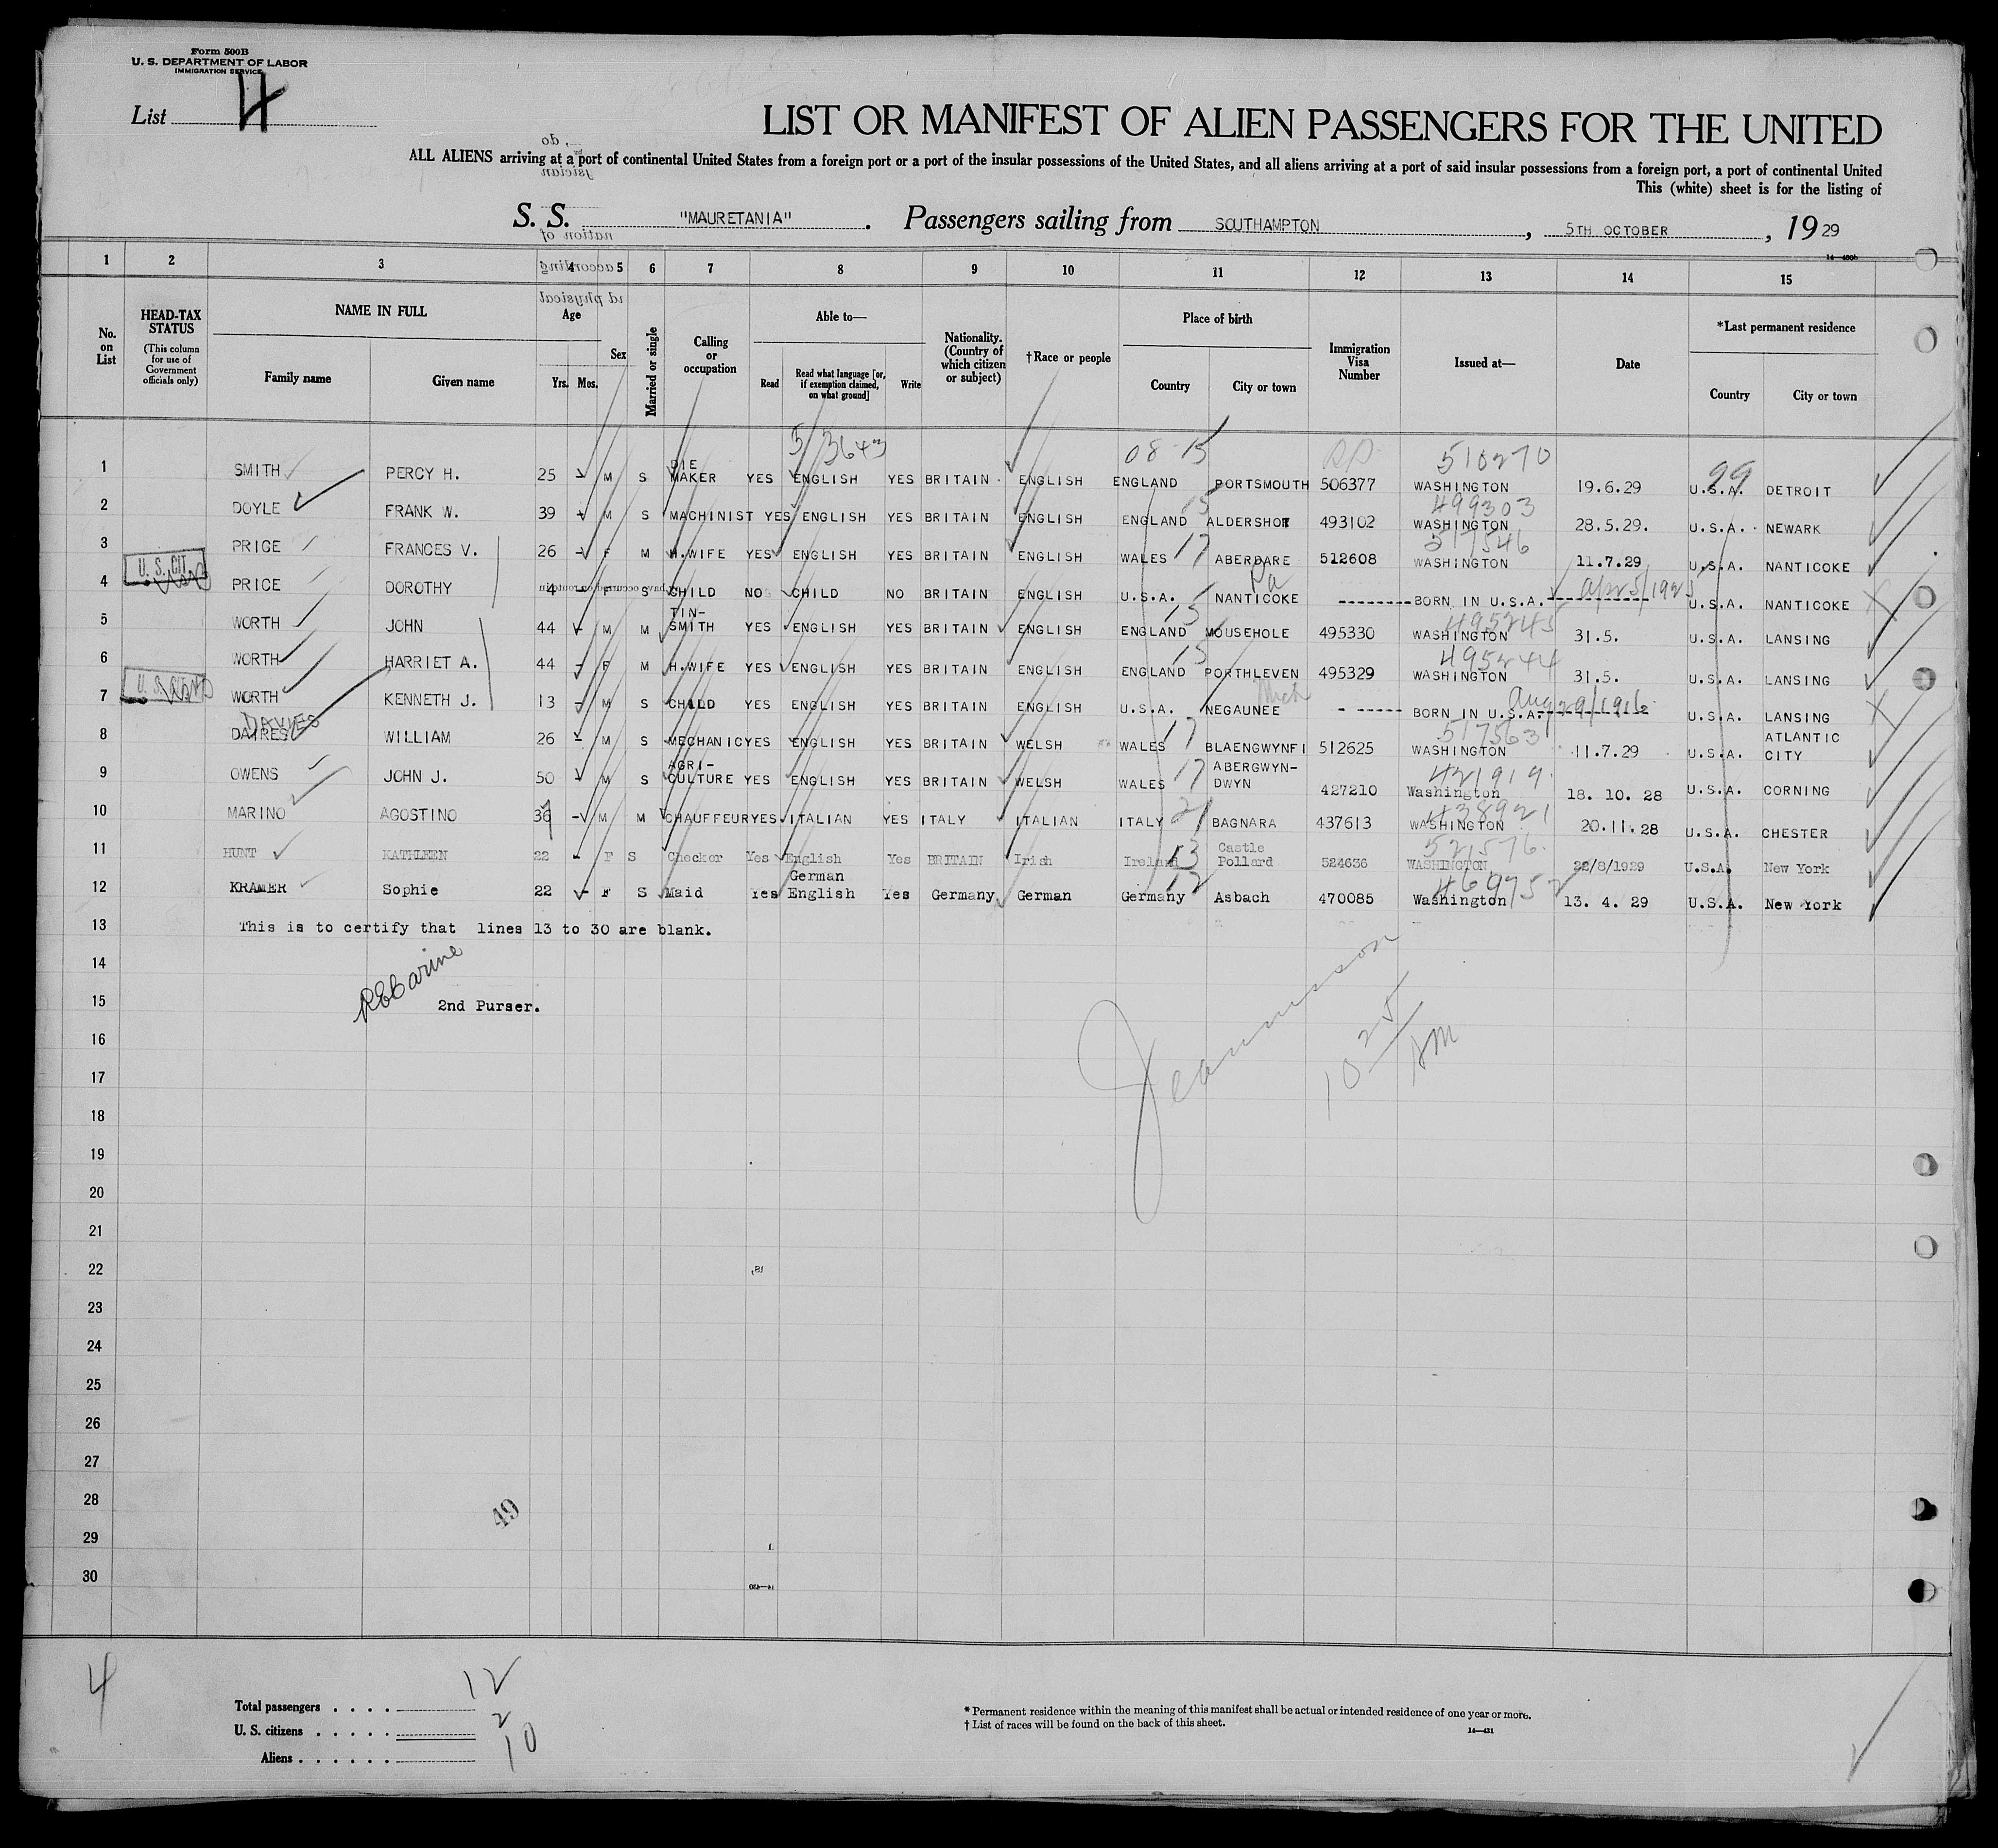 Form 500B
U. S. DEPARTMENT OF LABOR
IMMIGRATION SERVICE
List 4
LIST OR MANIFEST OF ALIEN PASSENGERS FOR THE UNITED
ALL ALIENS arriving at a port of continental United States from a foreign port or a port of the insular possessions of the United States, and all aliens arriving at a port of said insular possessions from a foreign port, a port of continental United
This (white) sheet is for the listing of
S. S. "MAURETANIA". Passengers sailing from SOUTHAMPTON, 5TH OCTOBER, 19 29
14—430b
1 2 3 4 5 6 7 8 9 10 11 12 13 14 15
No. on List
HEAD-TAX STATUS
(This column for use of Government officials only)
NAME IN FULL
Family name Given name
Age
Yrs. Mos.
Sex
Married or single
Calling or occupation
Able to—
Read
Read what language [or, if exemption claimed, on what ground]
Write
Nationality. (Country of which citizen or subject)
†Race or people
Place of birth
Country City or town
Immigration Visa Number
Issued at—
Date
*Last permanent residence
Country City or town
5/3643 08-15 510270 99
1 SMITH PERCY H. 25 - M S DIE MAKER YES ENGLISH YES BRITAIN ENGLISH ENGLAND PORTSMOUTH 506377 WASHINGTON 19.6.29 U.S.A. DETROIT
499303
2 DOYLE FRANK W. 39 - M S MACHINIST YES ENGLISH YES BRITAIN ENGLISH ENGLAND 15 ALDERSHOT 493102 WASHINGTON 28.5.29. U.S.A. NEWARK
517546
3 PRICE FRANCES V. 26 - F M H.WIFE YES ENGLISH YES BRITAIN ENGLISH WALES 17 ABERDARE 512608 WASHINGTON 11.7.29 U.S.A. NANTICOKE
U. S. CIT.
4 PRICE DOROTHY 4 F S CHILD NO CHILD NO BRITAIN ENGLISH U.S.A. NANTICOKE Pa --------BORN IN U.S.A.---------- Apr 5/1925 U.S.A. NANTICOKE
495245
5 WORTH JOHN 44 - M M TIN-SMITH YES ENGLISH YES BRITAIN ENGLISH ENGLAND 15 MOUSEHOLE 495330 WASHINGTON 31.5. U.S.A. LANSING
495244
6 WORTH HARRIET A. 44 - F M H.WIFE YES ENGLISH YES BRITAIN ENGLISH ENGLAND 15 PORTHLEVEN 495329 WASHINGTON 31.5. U.S.A. LANSING
U. S. CIT.
7 WORTH KENNETH J. 13 - M S CHILD YES ENGLISH YES BRITAIN ENGLISH U.S.A. NEGAUNEE Mich - ----- BORN IN U.S.A.---------- Aug/29/1916 U.S.A. LANSING
DAVIES 517563
8 DAIRES WILLIAM 26 - M S MECHANIC YES ENGLISH YES BRITAIN WELSH WALES 17 BLAENGWYNFI 512625 WASHINGTON 11.7.29 U.S.A. ATLANTIC CITY
421919
9 OWENS JOHN J. 50 - M S AGRI-CULTURE YES ENGLISH YES BRITAIN WELSH WALES 17 ABERGWYN-DWYN 427210 Washington 18. 10. 28 U.S.A. CORNING
438921
10 MARINO AGOSTINO 36 - M M CHAUFFEUR YES ITALIAN YES ITALY ITALIAN ITALY 21 BAGNARA 437613 WASHINGTON 20.11.28 U.S.A. CHESTER
521576
11 HUNT KATHLEEN 22 - F S Checker Yes English Yes BRITAIN Irish Ireland 13 Castle Pollard 524636 WASHINGTON 22/8/1929 U.S.A. New York
12 KRAMER Sophie 22 - F S Maid Yes German English Yes Germany German Germany 12 Asbach 470085 Washington 13. 4. 29 U.S.A. New York
13 This is to certify that lines 13 to 30 are blank.
14
15 2nd Purser.
16
17
18
19
20
21
22
23
24
25
26
27
28
29
30
10 25 AM
49
4
Total passengers . . . . 12
U. S. citizens . . . . . 2
Aliens . . . . . . 10
* Permanent residence within the meaning of this manifest shall be actual or intended residence of one year or more.
† List of races will be found on the back of this sheet.
14—431